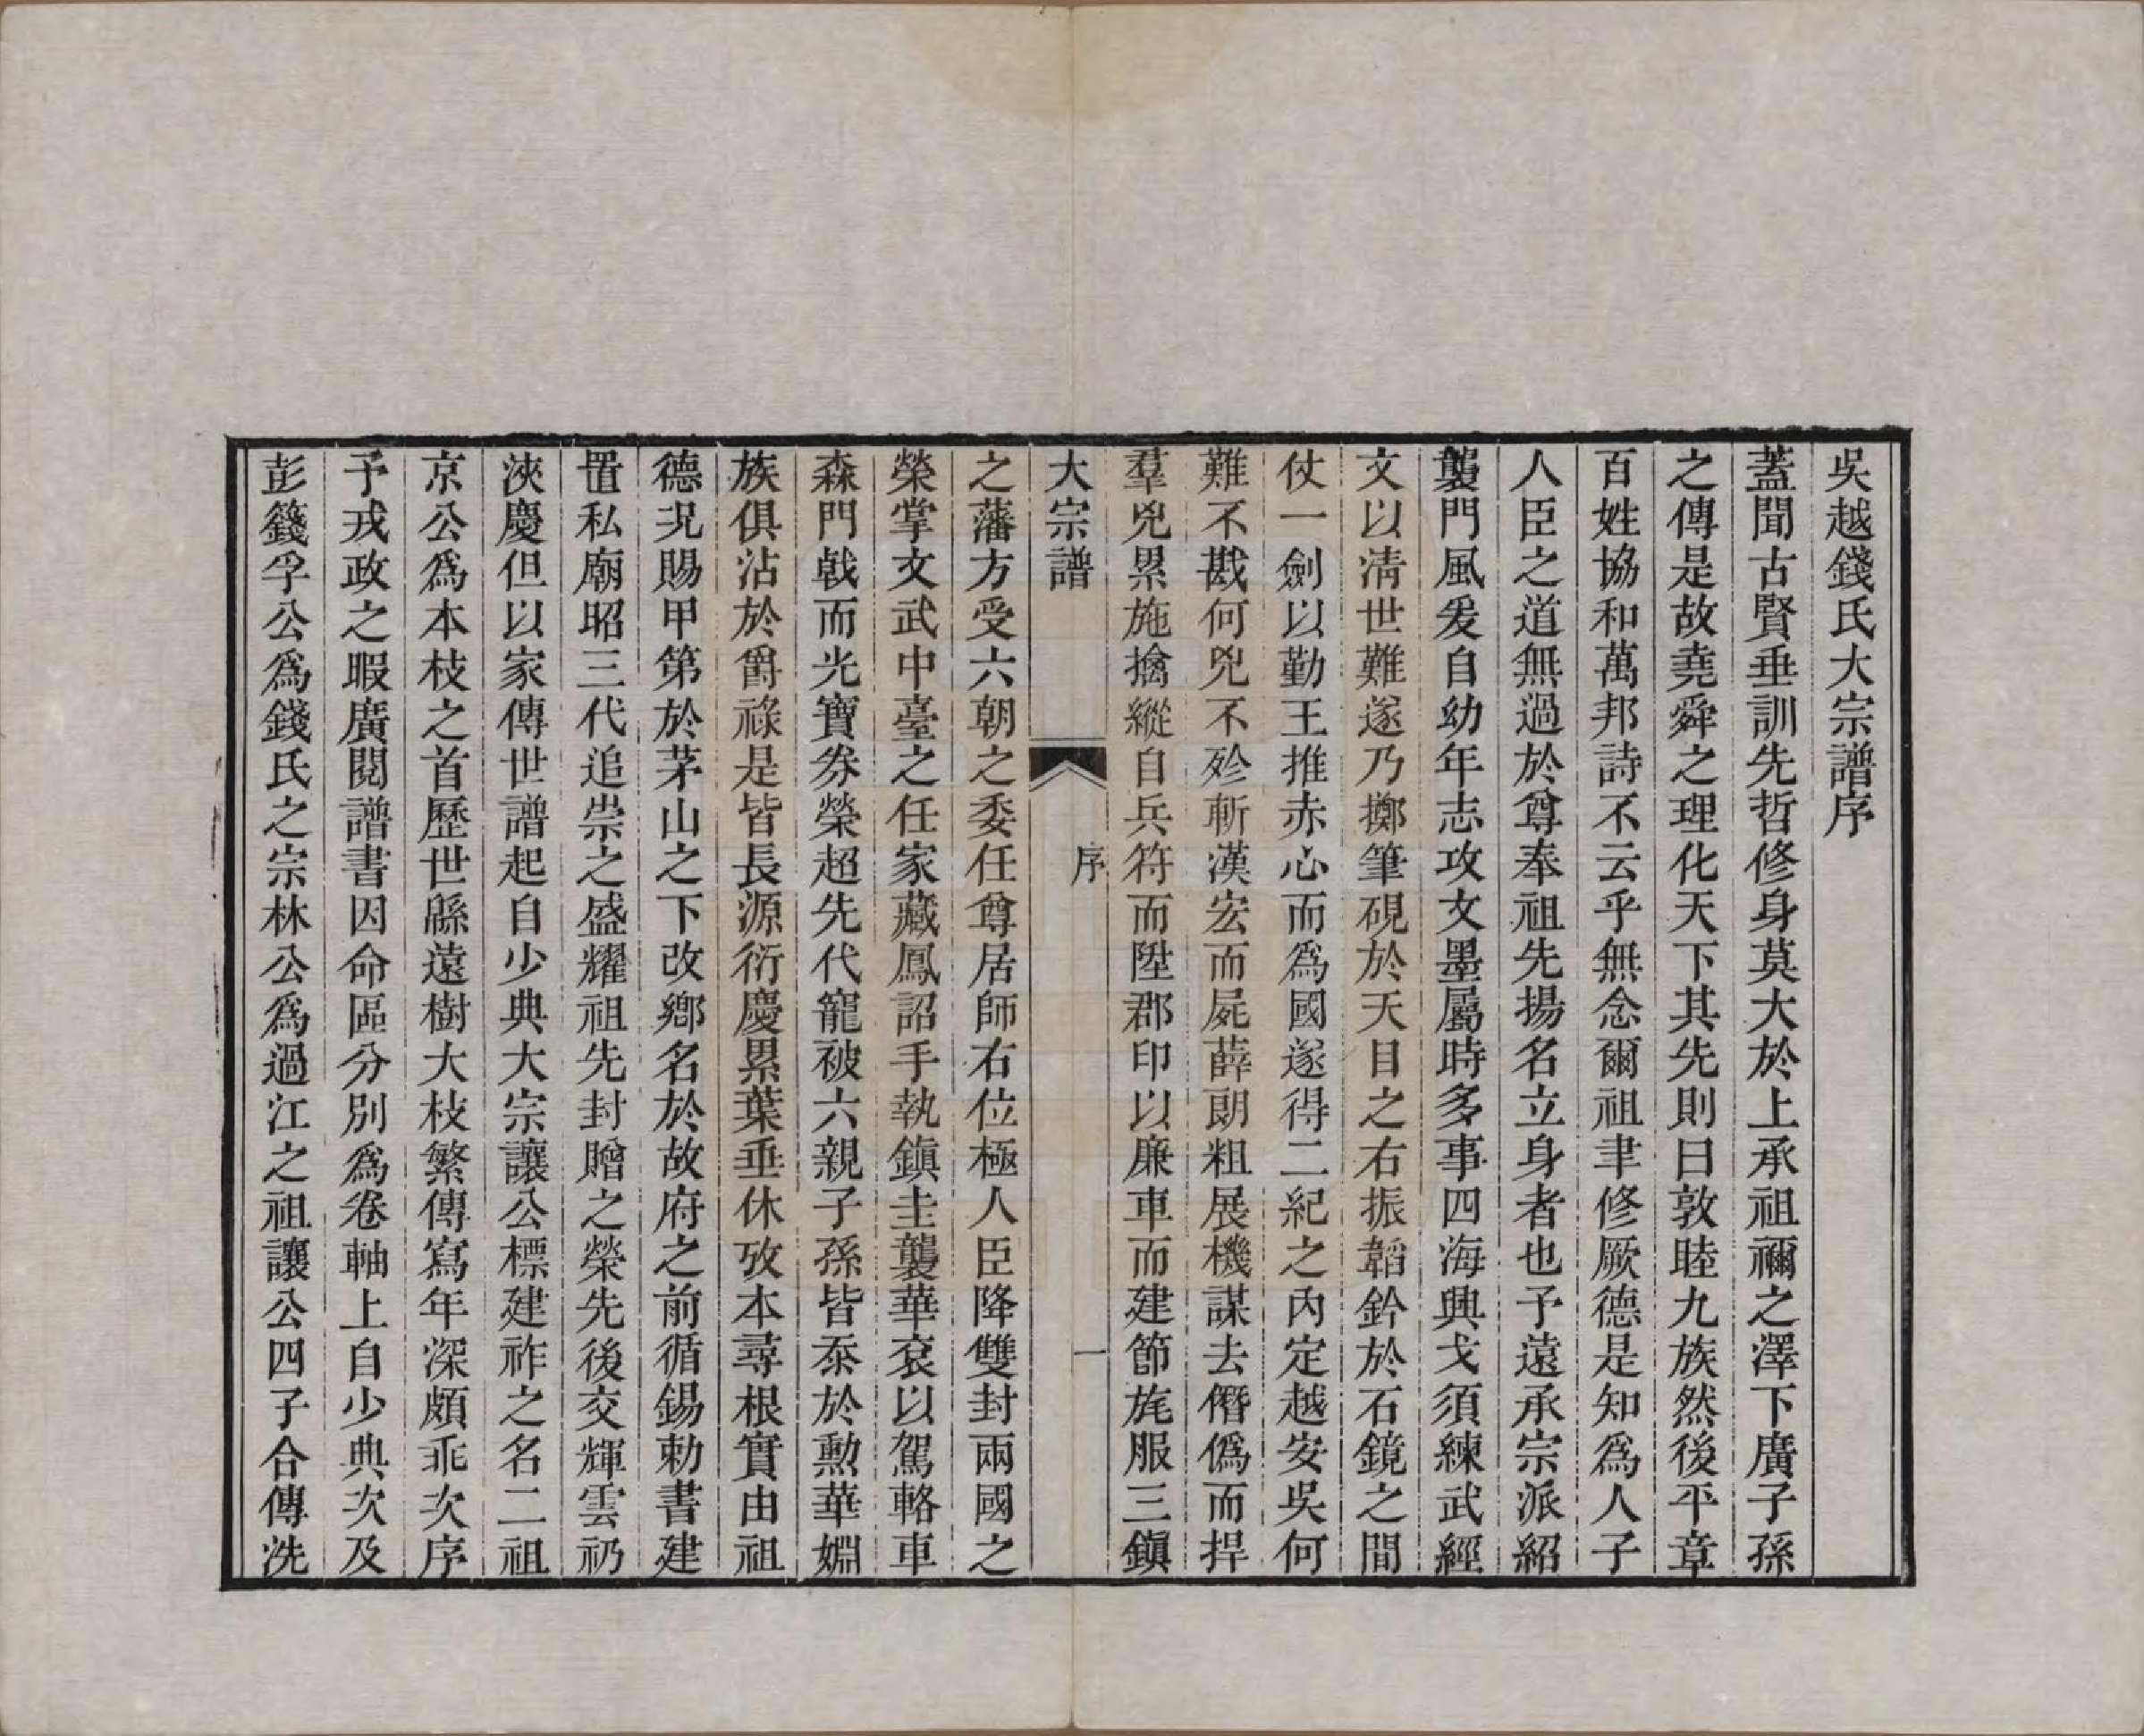 吳越錢氏大宗譜序
蓋聞古賢垂訓先哲修身莫大於上承祖禰之澤下廣子孫
之傳是故堯舜之理化天下其先則曰敦睦九族然後平章
百姓協和萬邦詩不云乎無念爾祖聿修厥德是知爲人子
人臣之道無過於尊奉祖先揚名立身者也予遠承宗派紹
襲門風爰自幼年志攻文墨屬時多事四海興戈須練武經
文以淸世難遂乃擲筆硯於天目之右振韜鈐於石鏡之間
仗一劍以勤王推赤心而爲國遂得二紀之內定越安吳何
難不戡何兇不殄斬漢宏而屍薛朗粗展機謀去僭僞而捍
羣兇累施擒縱自兵符而陞郡印以廉車而建節旄服三鎭
大宗譜 序 一
之藩方受六朝之委任尊居師右位極人臣降雙封兩國之
榮掌文武中臺之任家藏鳳詔手執鎭圭襲華袞以駕輅車
森門戟而光寶券榮超先代寵被六親子孫皆忝於勲華婣
族俱沾於爵祿是皆長源衍慶累葉垂休攷本尋根實由祖
德况賜甲第於茅山之下改鄉名於故府之前循錫勅書建
置私廟昭三代追崇之盛耀祖先封贈之榮先後交輝雲礽
浹慶但以家傳世譜起自少典大宗讓公標建祚之名二祖
京公爲本枝之首歷世緜遠樹大枝繁傳寫年深頗乖次序
予戎政之暇廣閱譜書因命區分別爲卷軸上自少典次及
彭籛孚公爲錢氏之宗林公爲過江之祖讓公四子合傳洗